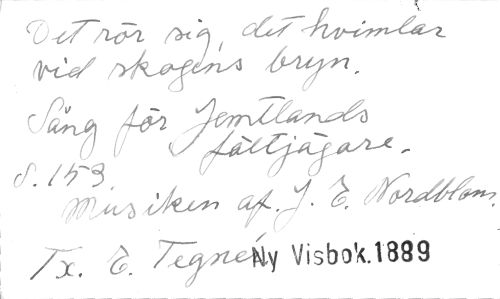 Det rör sig, det hvimlar
vid skogens bryn.
Sång för Jemtlands
fältjägare.
S. 153
Musiken af. J. E. Nordblom.
Tx. E. Tegnér Ny Visbok.1889